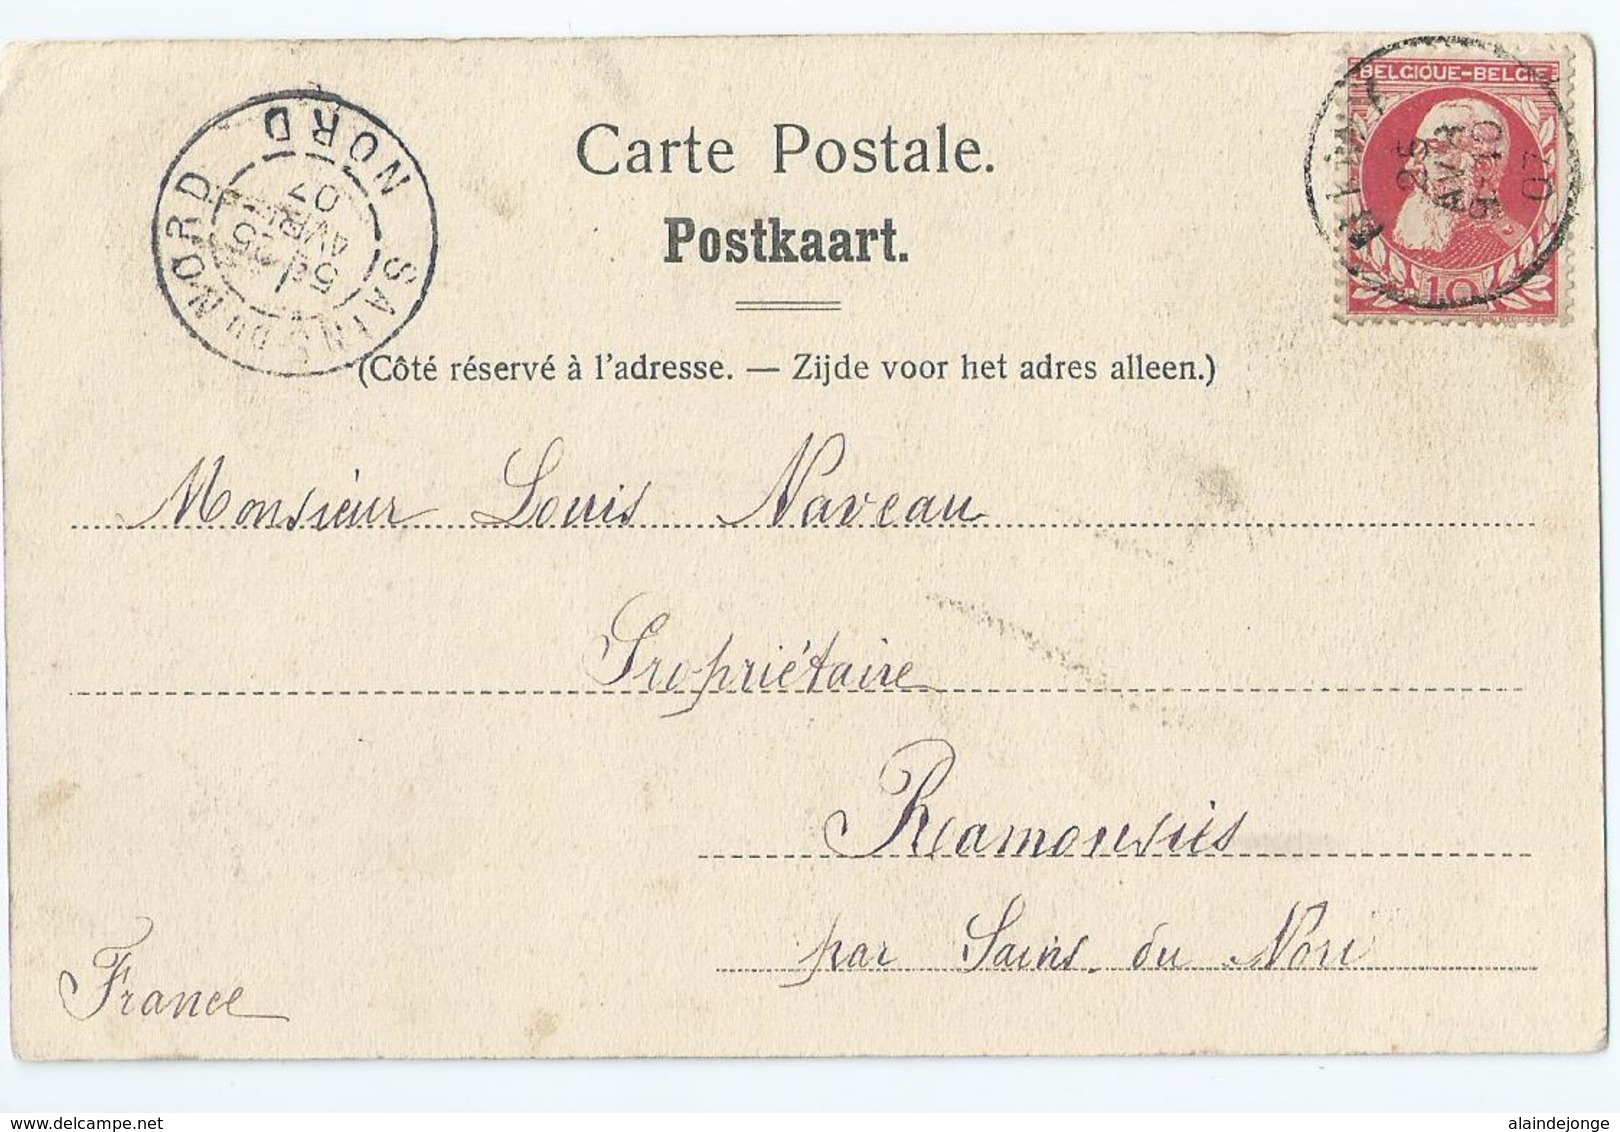 BELGIQUE-BELGIE
10
25
AVR
5-10
07
NORD
SAINS DU NORD
5d
25
AVRIL
07
Carte Postale.
Postkaart.
(Côté réservé à l'adresse. — Zijde voor het adres alleen.)
Monsieur Louis Naveau
Propriétaire
Ramousies
par Sains du Nord
France
alaindejonge